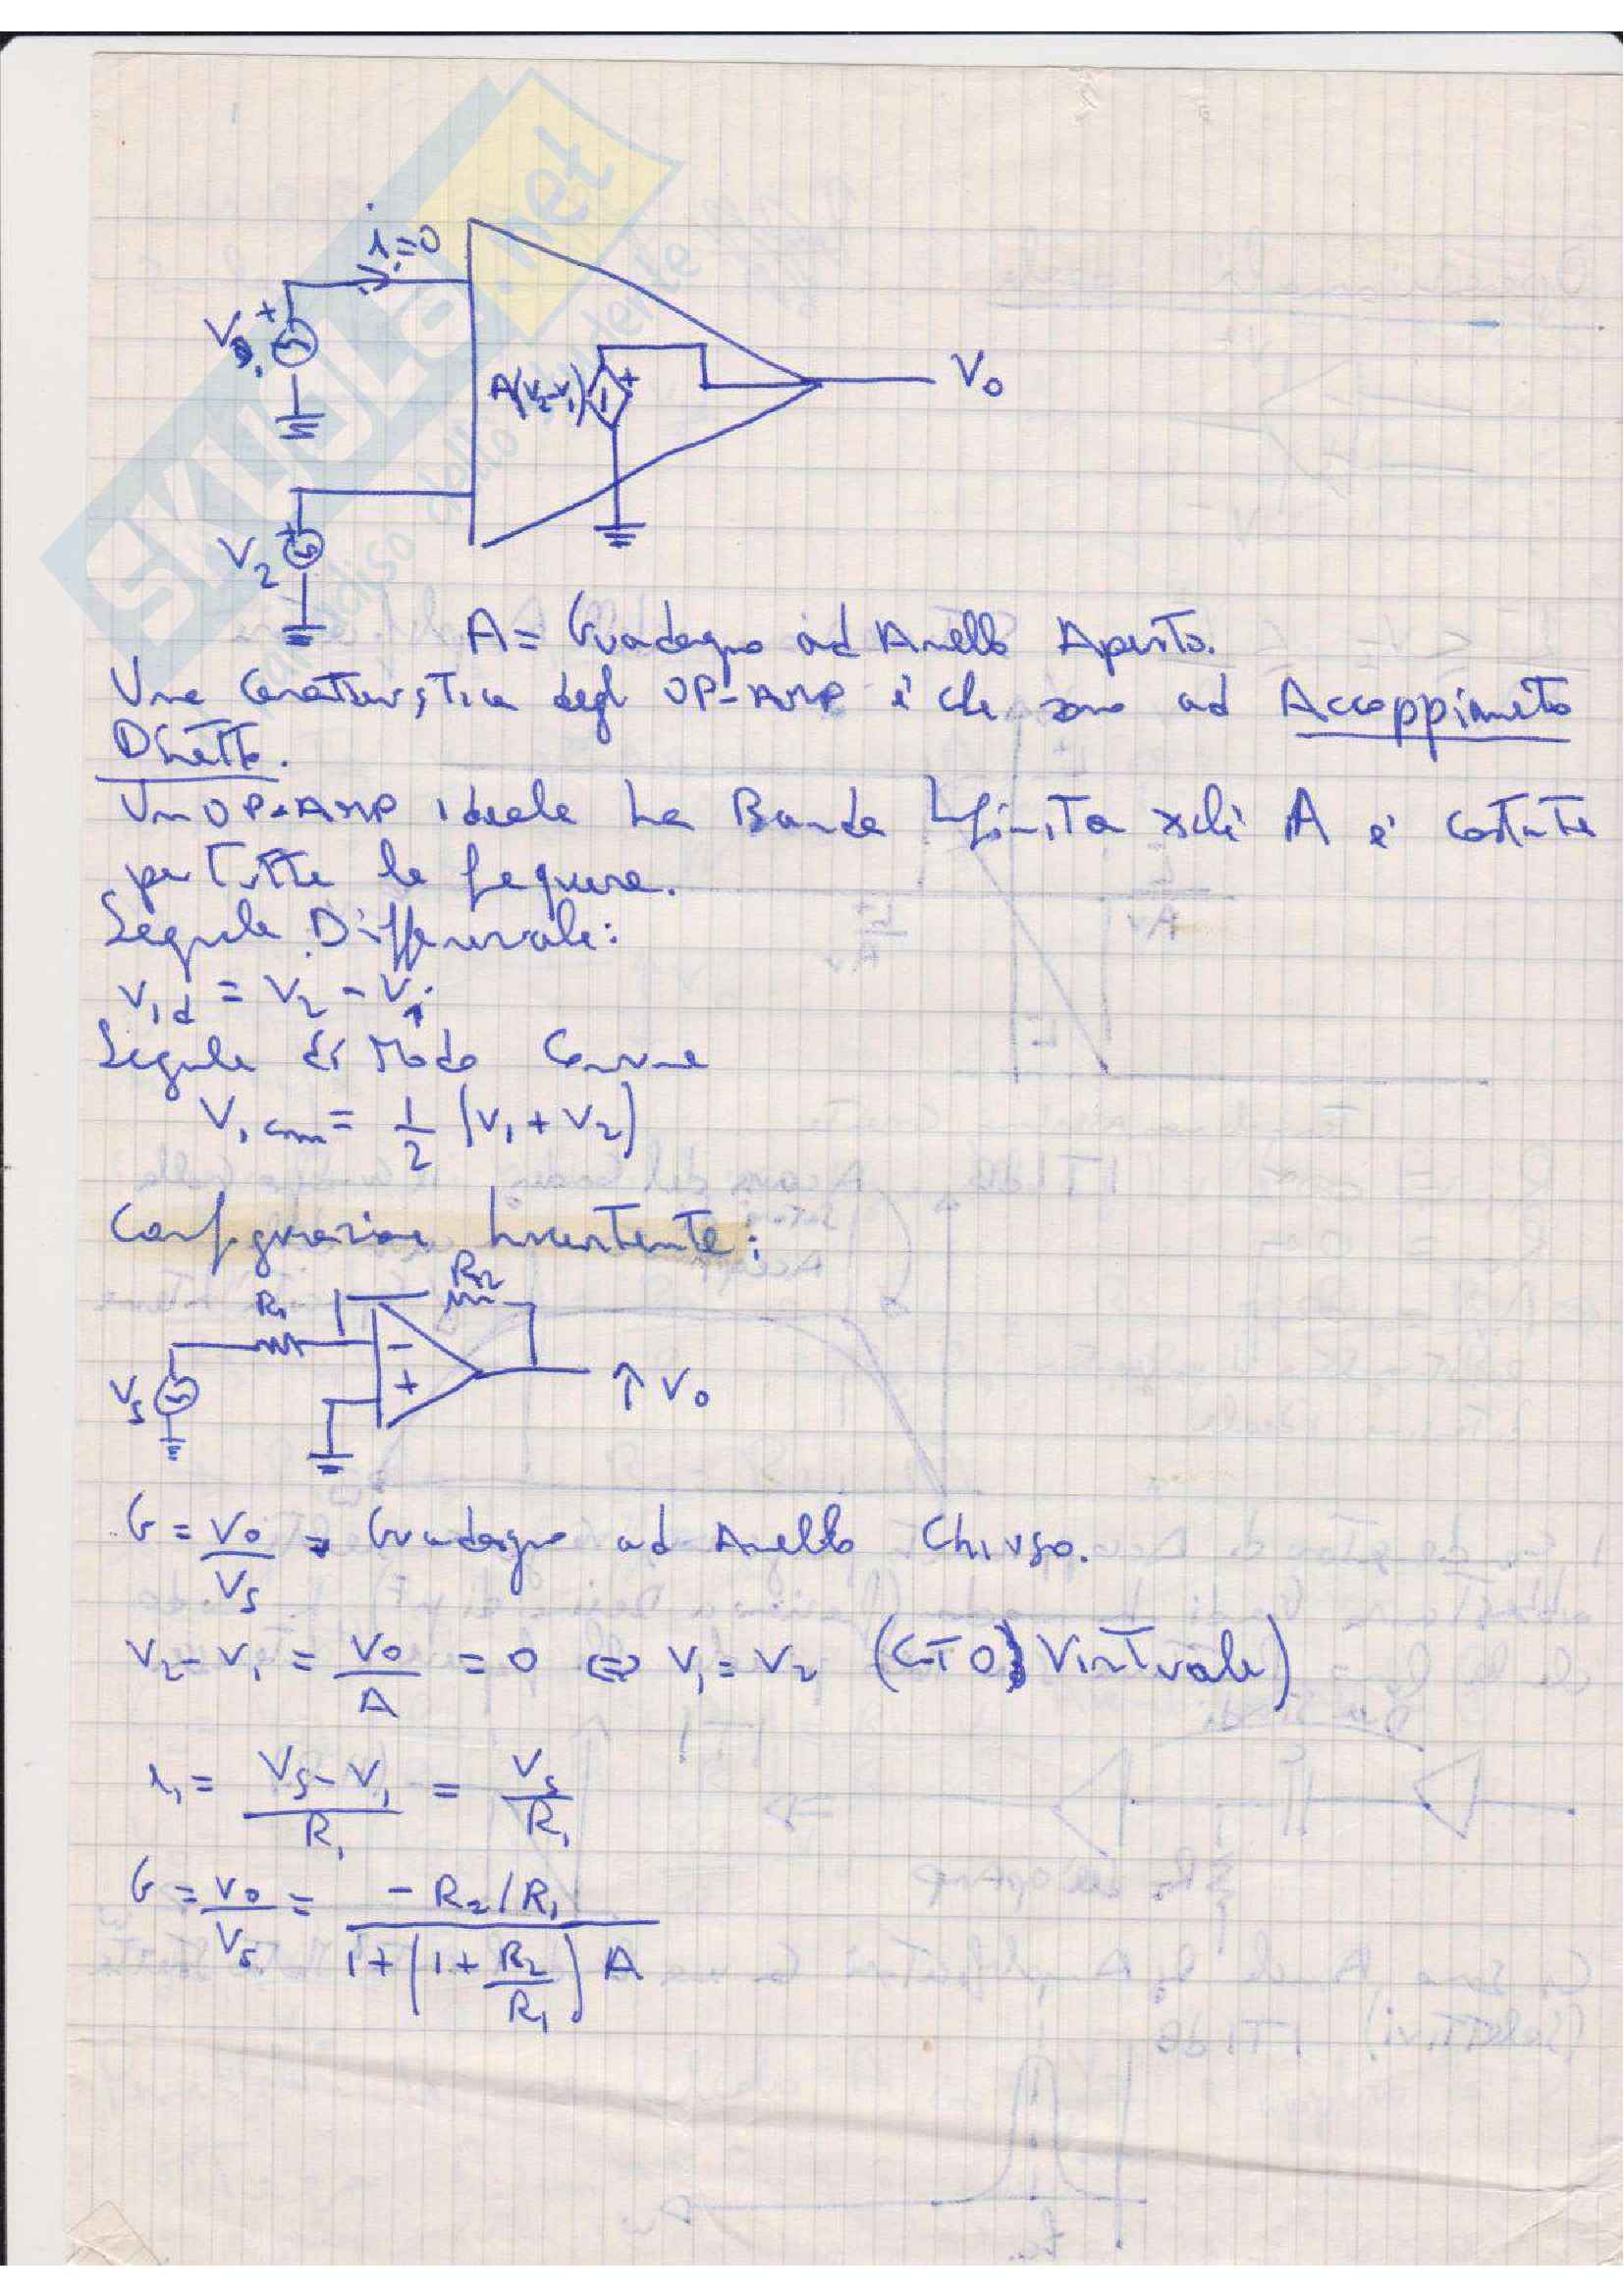 i=0
V1
+
A(V2-V1)
+
Vo
V2
+
A = Guadagno ad Anello Aperto.
Una Caratteristica degli OP-AMP è che sono ad Accoppiamento
Diretto.
Un OP-AMP ideale ha Banda Infinita xchè A è costante
per Tutte le frequenze.
Segnale Differenziale:
Vid = V2 - V1
Segnale di Modo Comune
Vicm = 1/2 (V1 + V2)
Configurazione Invertente:
R1
R2
Vs
-
+
↑ Vo
G = Vo/Vs = Guadagno ad Anello Chiuso.
V2 - V1 = Vo/A = 0 ⇔ V1 = V2 (CTO Virtuale)
i1 = (Vs - V1)/R1 = Vs/R1
G = Vo/Vs = (-R2/R1)/(1+(1+R2/R1)A)
SKUOLA.net